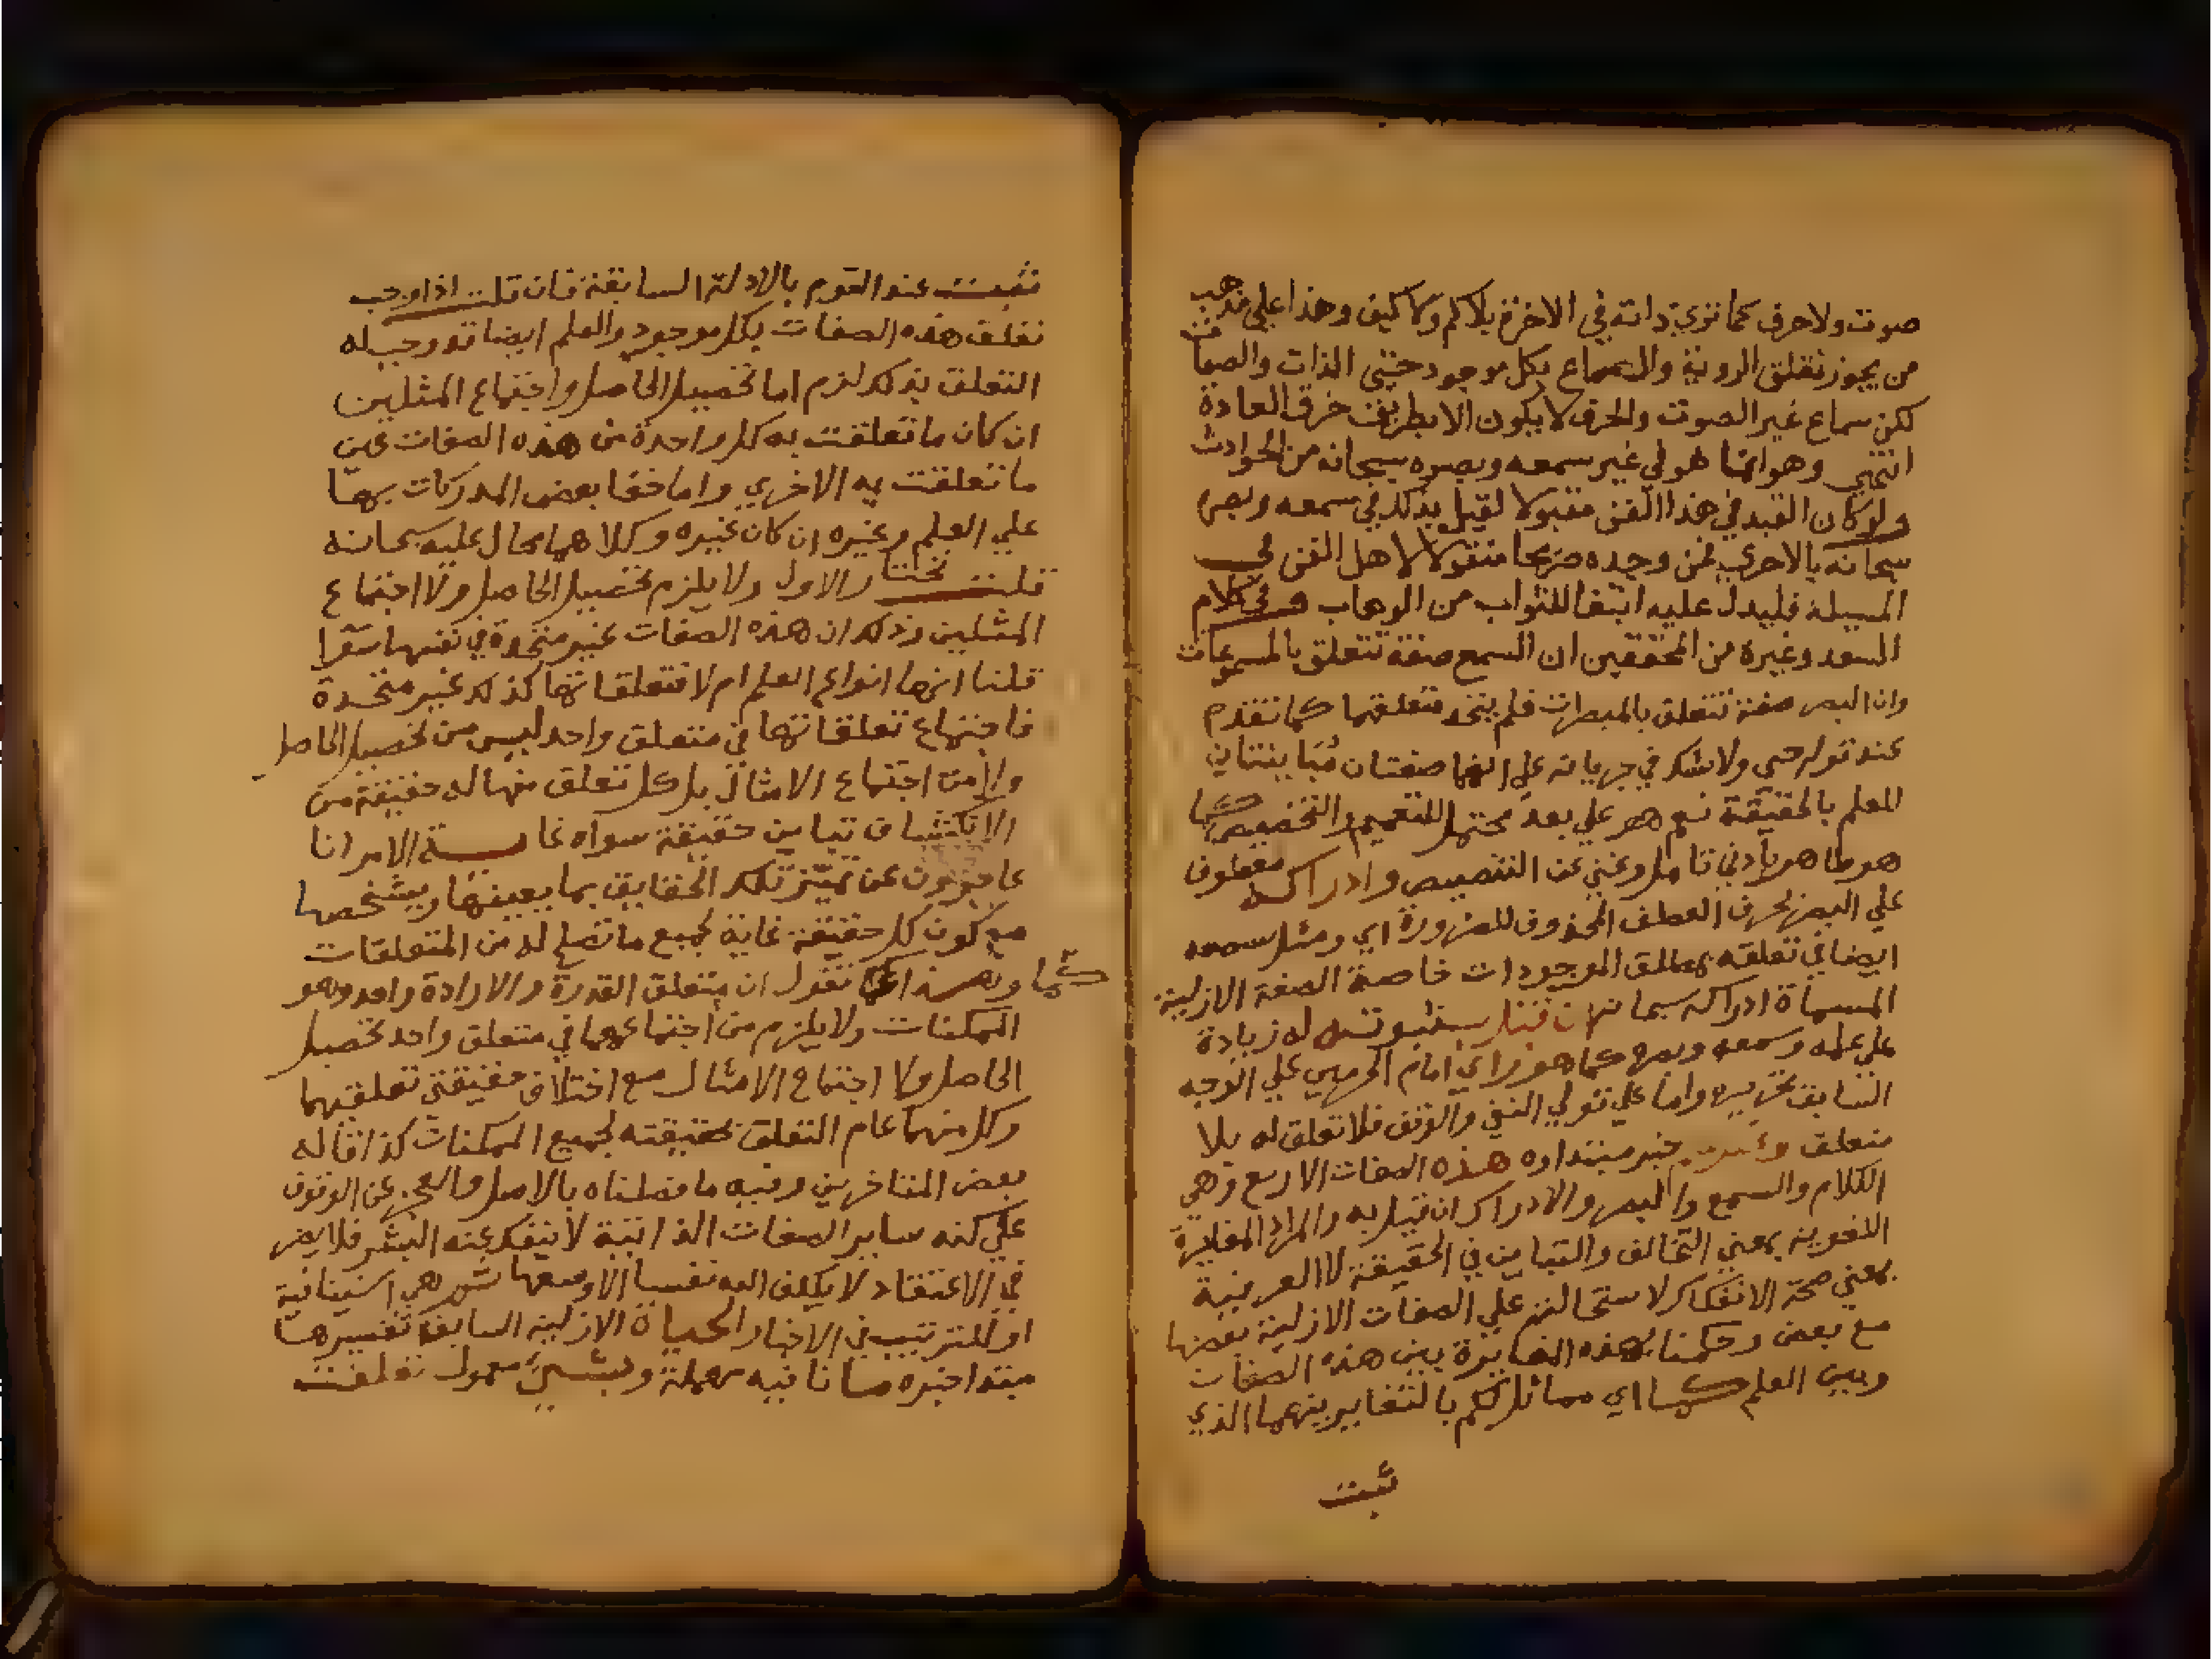 صوت ولا حرف كما نري ذاته في الاخرة بلا كم ولا كيف وهذا علي مذهب
من يجوز تعلق الروية والسماع بكل موجود حتي الذات والصفات
لكن سماع غير الصوت والحرف لا يكون الا بطريق خرق العادة
انتهي وهو انما هو في غير سمعه وبصره سبحانه من الحوادث
ولو كان القيد في هذا الفن مقبولا لقيل بذلك في سمعه وبصره
سبحانه بالاحري فمن وجده صريحا منقولا لاهل الفن في
المسيلة فليدل عليه ابتغا للثواب من الوهاب وفي كلام
السعد وغيره من المحققين ان السمع صفة تتعلق بالمسموعات
وان البصر صفة تتعلق بالمبصرات فلم يتحد متعلقهما كما تقدم
عند قوله حي ولا شك في جريانه علي انهما صفتان مباينتان
للعلم بالحقيقة نعم هو علي بعد محتمل للتعميم والتخصيص كما
هو ظاهر بادني تامل وغني عن التنصيص وادراكه معطوف
علي البصر بحرف العطف المحذوف للضرورة اي ومثل سمعه
ايضا في تعلقه بمطلق الموجودات خاصة الصفة الازلية
المسماة ادراكه سبحانه ان قيل بثبوته له زيادة
علي علمه وسمعه وبصره كما هو راي امام الحرمين علي الوجه
السابق تحريره واما علي قولي النفي والوقف فلا تعلق له بلا
متعلق وغير خبر مبتداوه هذه الصفات الاربع وهي
الكلام والسمع والبصر والادراك ان قيل به والمراد المغايرة
اللغوية بمعني التخالف والتباين في الحقيقة لا العرفية
بمعني صحة الانفكاك لاستحالته علي الصفات الازلية بعضها
مع بعض وحكمنا بهذه المغايرة بين هذه الصفات
وبين العلم كما اي مماثل لحكم بالتغاير بينهما الذي
ثبت
ثبت عند القوم بالادلة السابقة فان قلت اذا وجب
تعلق هذه الصفات بكل موجود والعلم ايضا قد وجب له
التعلق بذلك لزم اما تحصيل الحاصل واجتماع المثلين
ان كان ما تعلقت به كل واحدة من هذه الصفات عين
ما تعلقت به الاخري واما خفا بعض المدركات بها
علي العلم وغيره ان كان غيره وكلاهما محال عليه سبحانه
قلت نختار الاول ولا يلزم تحصيل الحاصل ولا اجتماع
المثلين وذلك ان هذه الصفات غير متحدة في نفسها سوا
قلنا انها انواع العلم ام لا فتعلقاتها كذلك غير متحدة
فاجتماع تعلقاتها في متعلق واحد ليس من تحصيل الحاصل
ولا من اجتماع الامثال بل كل تعلق منها له حقيقة من
الانكشاف تباين حقيقة سواه غاية الامر انا
عاجزون عن تمييز تلك الحقايق بما يعينها ويشخصها
مع كون كل حقيقة غاية لجميع ما تصلح له من المتعلقات
وهذا كما نقول ان متعلق القدرة والارادة واحد وهو
الممكنات ولا يلزم من اجتماعهما في متعلق واحد تحصيل
الحاصل ولا اجتماع الامثال مع اختلاف حقيقتي تعلقيهما
وكل منهما عام التعلق بحقيقته لجميع الممكنات كذا قاله
بعض المتاخرين وفيه ما فصلناه بالاصل والعجز عن الوقوف
علي كنه ساير الصفات الذاتية لا ينفك عنه البشر فلا يضر
في الاعتقاد لا يكلف الله نفسا الا وسعها ثم هي استينافية
او للترتيب في الاخبار الحياة الازلية السابق تفسيرها
مبتدا خبره ما نافيه مهملة وبشي معمول تعلقت